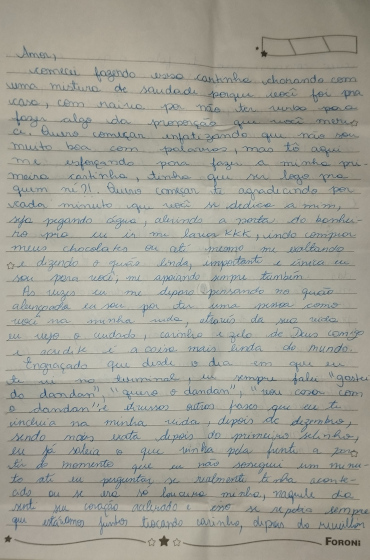 Amor,
comecei fazendo essa cartinha chorando com
uma mistura de saudade porque você foi pra
casa, com raiva por não ter verba para
fazer algo da proporção que você mere
ce. Quero começar enfatizando que não sou
muito boa com palavras, mas tô aqui
me esforçando para fazer a minha pri-
meira cartinha, tinha que ser logo pra
quem né?!. Quero começar te agradecendo por
cada minuto que você se dedica a mim,
seja pegando água, abrindo a porta do banhei-
ro pra eu ir me lavar KKK, indo comprar
meus chocolates ou até mesmo me exaltando
e dizendo o quão linda, importante e única eu
sou para você, me apoiando sempre também
As vezes eu me deparo pensando no quão
abençoada eu sou por ter uma pessoa como
você na minha vida, através da sua vida
eu vejo o cuidado, carinho e zelo de Deus comigo
e acredite é a coisa mais linda do mundo.
Engraçado que desde o dia em que eu
te vi no terminal, eu sempre falei "gostei
do dandan", "quero o dandan", "vou casar com
o dandan" e diversas outras frases que eu te
incluía na minha vida, depois de dezembro,
sendo mais exata depois do primeiro selinho,
eu já sabia o que vinha pela frente a par
tir do momento que eu não consegui um minu-
to até eu perguntar se realmente tinha aconte-
cido ou se era só loucura minha, naquele dia
senti seu coração acelerado e isso se repetiu sempre
que estávamos juntos trocando carinho, depois do
Foroni